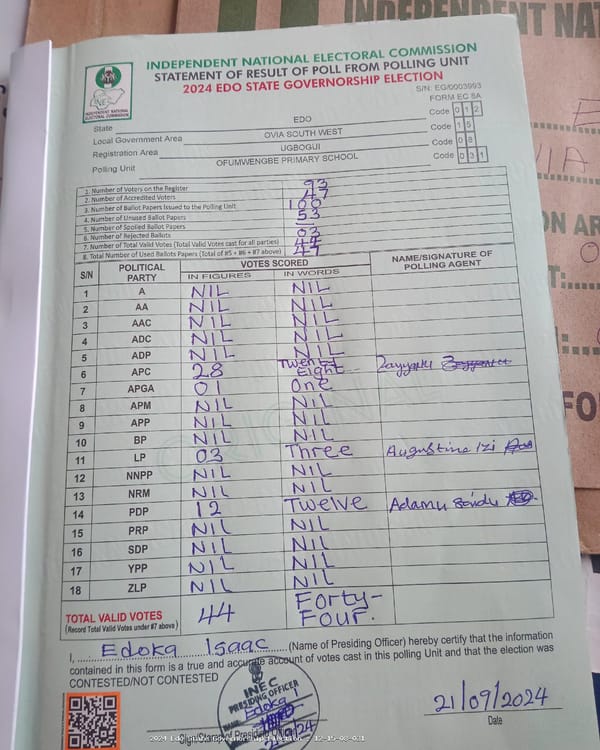 INDEPENDENT NAT
INDEPENDENT NATIONAL ELECTORAL COMMISSION
STATEMENT OF RESULT OF POLL FROM POLLING UNIT
2024 EDO STATE GOVERNORSHIP ELECTION
INEC
INDEPENDENT NATIONAL ELECTORAL COMMISSION
S/N: EG/0003993
FORM EC 8A
State EDO Code 0 1 2
Local Government Area OVIA SOUTH WEST Code 1 5
Registration Area UGBOGUI Code 0 8
Polling Unit OFUMWENGBE PRIMARY SCHOOL Code 0 3 1
1. Number of Voters on the Register 93
2. Number of Accredited Voters 47
3. Number of Ballot Papers Issued to the Polling Unit 100
4. Number of Unused Ballot Papers 53
5. Number of Spoiled Ballot Papers
6. Number of Rejected Ballots 03
7. Number of Total Valid Votes (Total Valid Votes cast for all parties) 44
8. Total Number of Used Ballots Papers (Total of #5 + #6 + #7 above) 47
S/N POLITICAL PARTY VOTES SCORED NAME/SIGNATURE OF POLLING AGENT
IN FIGURES IN WORDS
1 A NIL NIL
2 AA NIL NIL
3 AAC NIL NIL
4 ADC NIL NIL
5 ADP NIL NIL
6 APC 28 Twenty Eight
7 APGA 01 One
8 APM NIL NIL
9 APP NIL NIL
10 BP NIL NIL
11 LP 03 Three Augustine Izi
12 NNPP NIL NIL
13 NRM NIL NIL
14 PDP 12 Twelve Adamu
15 PRP NIL NIL
16 SDP NIL NIL
17 YPP NIL NIL
18 ZLP NIL NIL
TOTAL VALID VOTES 44 Forty-Four.
(Record Total Valid Votes under #7 above)
I, Edoka Isaac (Name of Presiding Officer) hereby certify that the information
contained in this form is a true and accurate account of votes cast in this polling Unit and that the election was
CONTESTED/NOT CONTESTED
INEC
PRESIDING OFFICER
Edoka I
21/09/2024
Date
2024 Edo State Governorship Election - 12-15-08-031